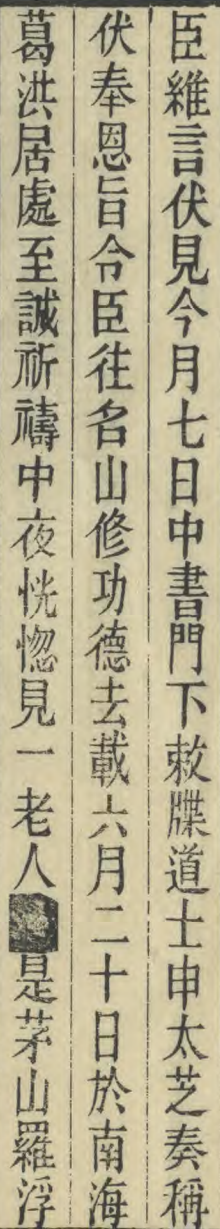 臣維言伏見今月七日中書門下敕牒道士申太芝奏稱
伏奉恩旨令臣往名山修功德去載六月二十日於南海
葛洪居處至誠祈禱中夜恍惚見一老人是茅山羅浮